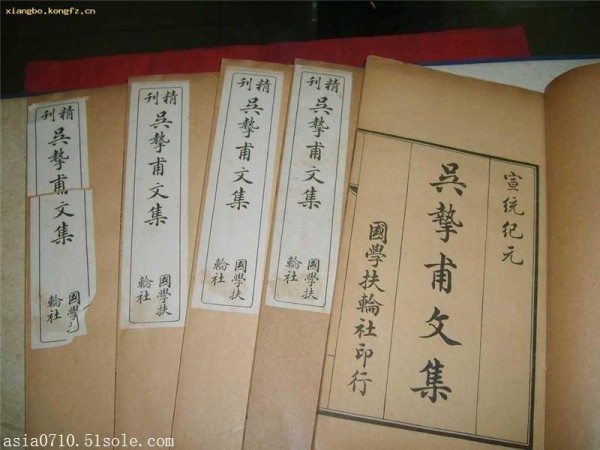 xiangbo.kongfz.cn
精刊
吳摯甫文集
國學
輪社
精刊
吳摯甫文集
國學扶
輪社
精刊
吳摯甫文集
國學扶
輪社
精刊
吳摯甫文集
國學扶
輪社
宣統紀元
吳摯甫文集
國學扶輪社印行
asia0710.51sole.com